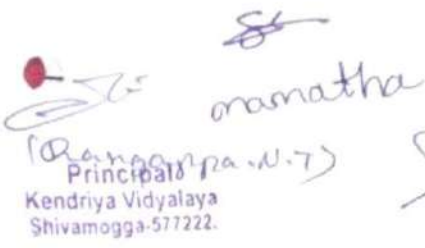 mamatha
(Rangappa.N.T)
Principal
Kendriya Vidyalaya
Shivamogga-577222.